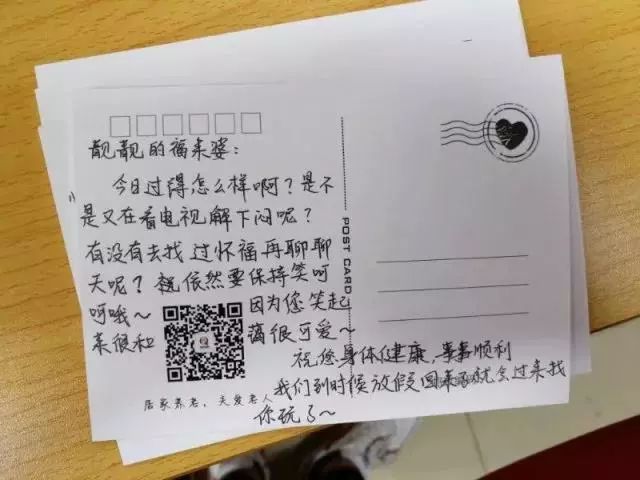 靓靓的福来婆：
今日过得怎么样啊？是不
是又在看电视解下闷呢？
有没有去找过怀福再聊聊
天呢？ 依然要保持笑呵
呵哦～ 因为您笑起
来很和蔼很可爱～
祝您身体健康、事事顺利
我们到时候放假回来就会过来找
你玩了～
居家养老，关爱老人
POST CARD